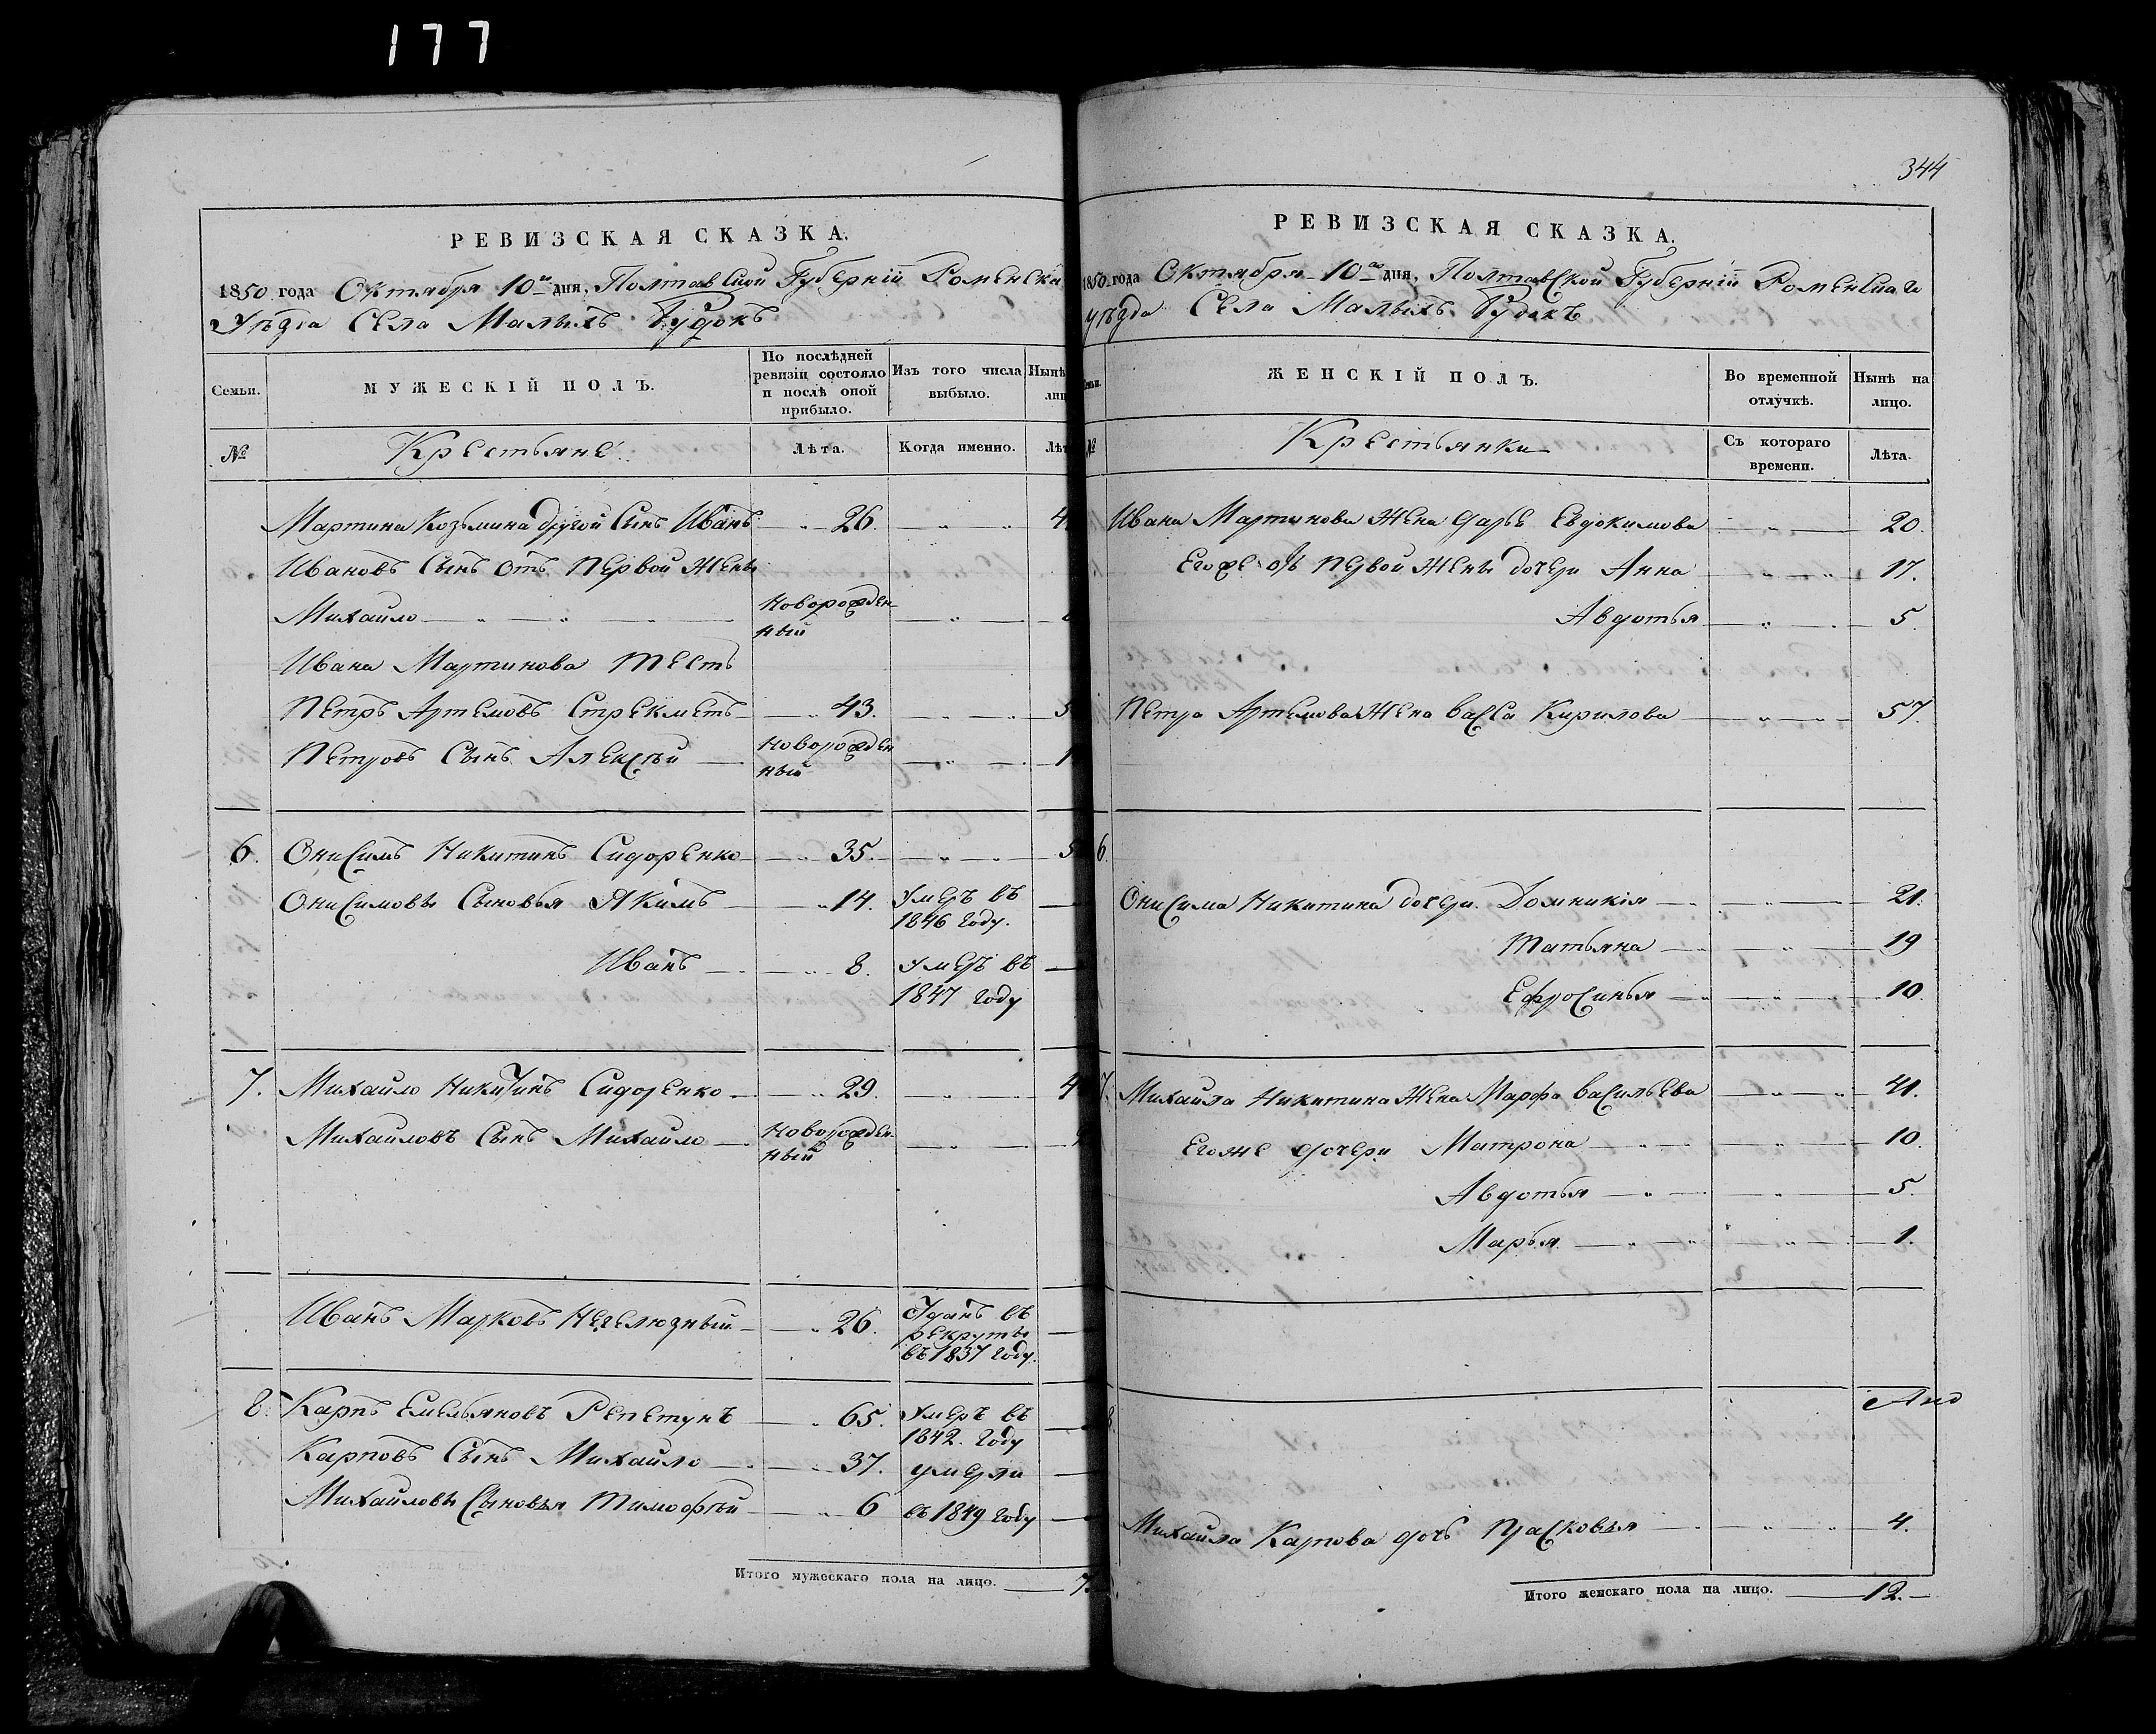 177
РЕВИЗСКАЯ СКАЗКА.
1850 года Октября 10го дня, Полтавской Губерніи Роменска
Уѣзда Села Малыхъ Будокъ
Семьи.
МУЖЕСКІЙ ПОЛЪ.
По послѣдней ревизіи состояло и послѣ оной прибыло.
Изъ того числа выбыло.
Нынѣ
лиц
№
Крестьяне
Лѣта.
Когда именно.
Лѣт
Мартина Козьмина другой Сынъ Иванъ 26. 4
Ивановъ Сынъ отъ первой жены
Михайло Новорожденный
Ивана Мартинова тесть
Петръ Артемовъ 43. 5
Петровъ Сынъ Алексѣй Новорожденный 1
6. Онисимъ Никитинъ Сидоренко 35. 5
Онисимовы Сыновья Якимъ 14. Умеръ въ 1846 Году.
Иванъ 8. Умеръ въ 1847 Году
7. Михайло Никитинъ Сидоренко 29. 4
Михайловъ Сынъ Михайло Новорожденный
Иванъ Марковъ 26. Зданъ въ рекруты въ 1837 Году.
8. Карпъ Емельяновъ Репетунъ 65. Умеръ въ 1842. Году
Карповъ Сынъ Михайло 37. умерли
Михайловы Сыновья Тимофѣй 6 въ 1849 Году
Итого мужескаго пола на лицо. 7.
344
РЕВИЗСКАЯ СКАЗКА.
1850 года Октября 10го дня, Полтавской Губерніи Роменскаго
уѣзда Села Малыхъ Будокъ
ЖЕНСКІЙ ПОЛЪ.
Во временной отлучкѣ.
Нынѣ на лицо.
№
Крестьянки
Съ котораго времени.
Лѣта.
Ивана Мартинова жена Дарье Евдокимова 20.
Егоже отъ первой жены дочери Анна 17.
Авдотья 5
Петра Артемова жена Васса Кирилова 57.
6.
Онисима Никитина дочери Домникія 21.
Татьяна 19
Ефросинья 10.
7. Михайла Никитина жена Марфа Васильева 41.
Егоже дочери Матрона 10.
Авдотья 5.
Марья 1.
8
Михайла Карпова дочь Пасковья 4.
Итого женскаго пола на лицо. 12.